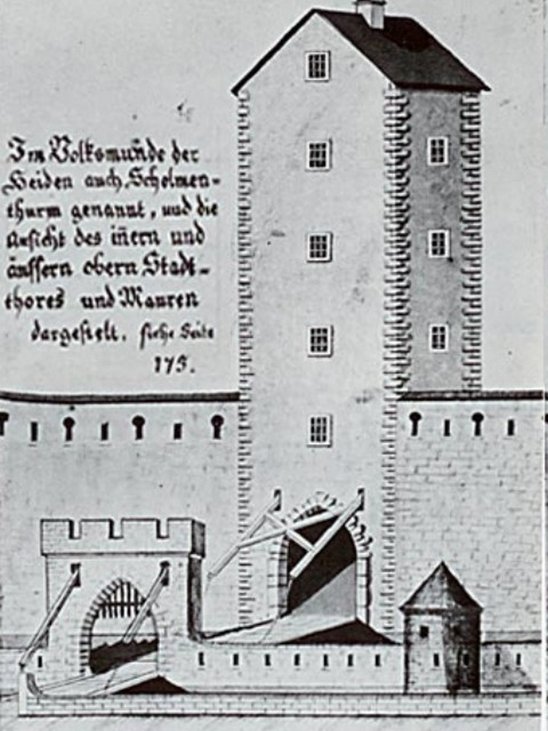 Im Volksmunde der
Heiden auch Schelmen-
thurm genannt, und die
Ansicht des iñern und
äussern obern Stadt-
thores und Mauren
dargestelt. siehe Seite
175.